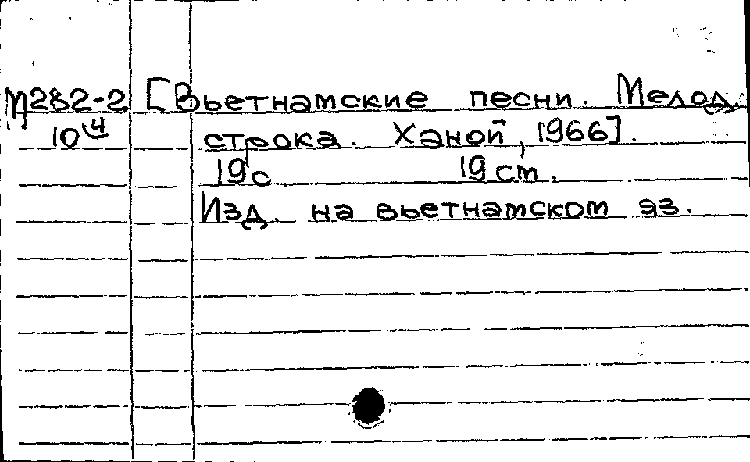 М282-2 [Вьетнамские песни. Мелод.
10 строка. Ханой, 1966].
19с 19 ст.
Изд. на вьетнамском яз.